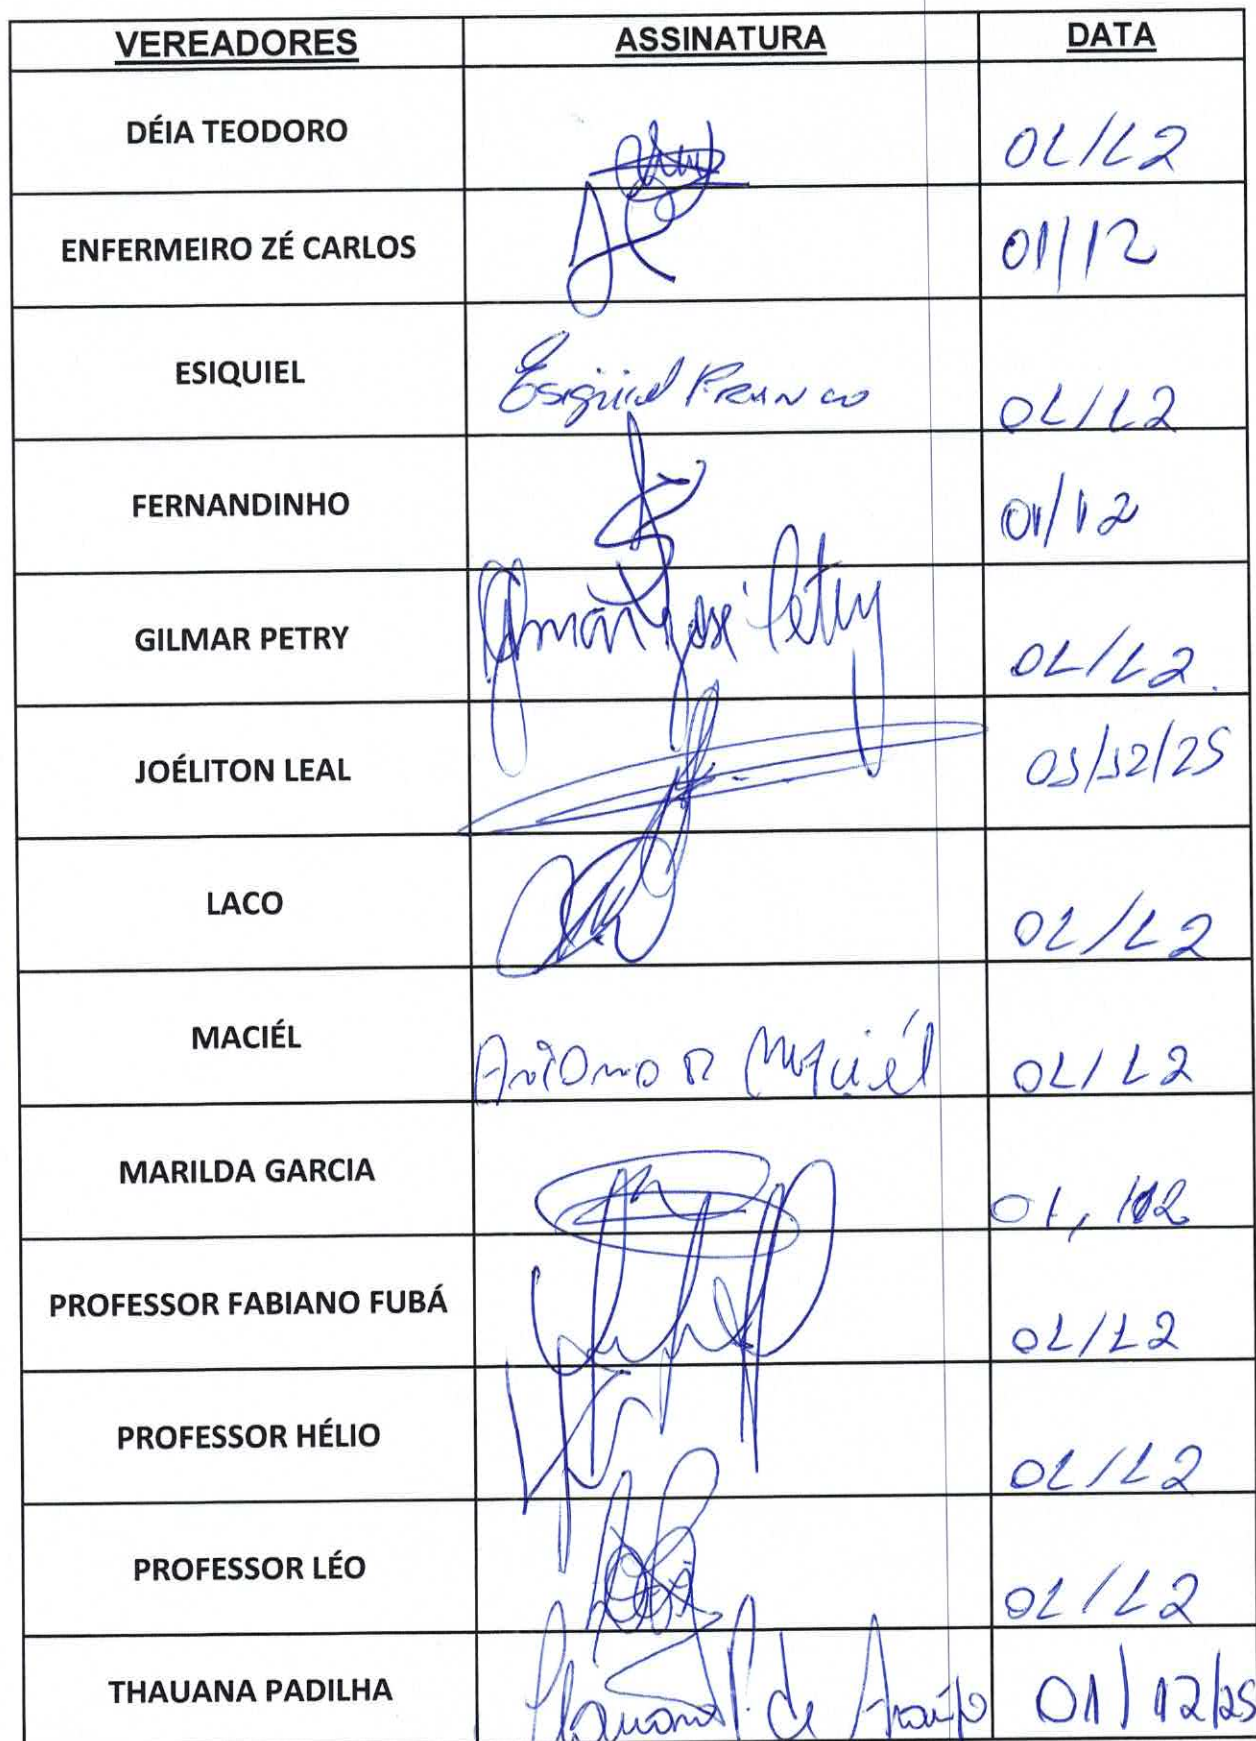 VEREADORES ASSINATURA DATA
DÉIA TEODORO 01/12
ENFERMEIRO ZÉ CARLOS 01/12
ESIQUIEL Esiquiel Franco 01/12
FERNANDINHO 01/12
GILMAR PETRY Gilmar José Petry 01/12
JOÉLITON LEAL 01/12/25
LACO 01/12
MACIÉL Antonio R Maciél 01/12
MARILDA GARCIA 01/12
PROFESSOR FABIANO FUBÁ 01/12
PROFESSOR HÉLIO 01/12
PROFESSOR LÉO 01/12
THAUANA PADILHA Thauana P. de Araújo 01/12/25